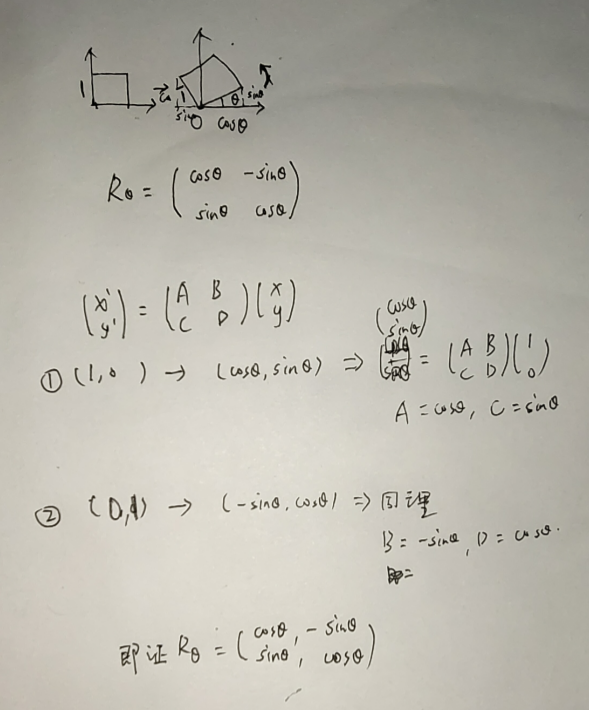 1 cosθ 1 θ sinθ
sinθ O cosθ
Rθ = (cosθ -sinθ
sinθ cosθ)
(x' y') = (A B C D)(x y)
(cosθ sinθ)
① (1,0) → (cosθ, sinθ) ⇒ = (A B C D)(1 0)
A = cosθ, C = sinθ
② (0,1) → (-sinθ, cosθ) ⇒ 同理
B = -sinθ, D = cosθ.
即证 Rθ = (cosθ, -sinθ
sinθ, cosθ)